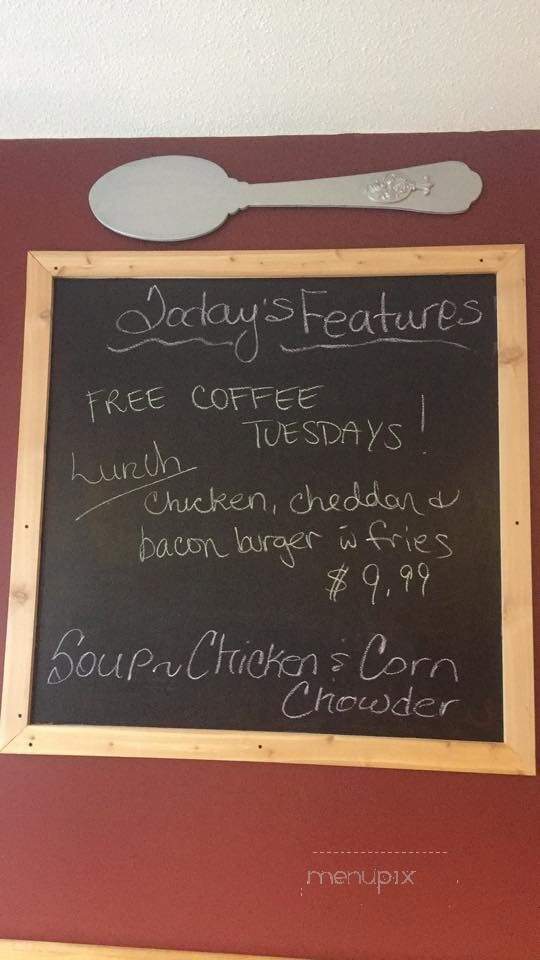 Today's Features
FREE COFFEE
TUESDAYS!
Lunch
Chicken, cheddar &
bacon burger w fries
$9.99
Soup~Chicken & Corn
Chowder
menupix